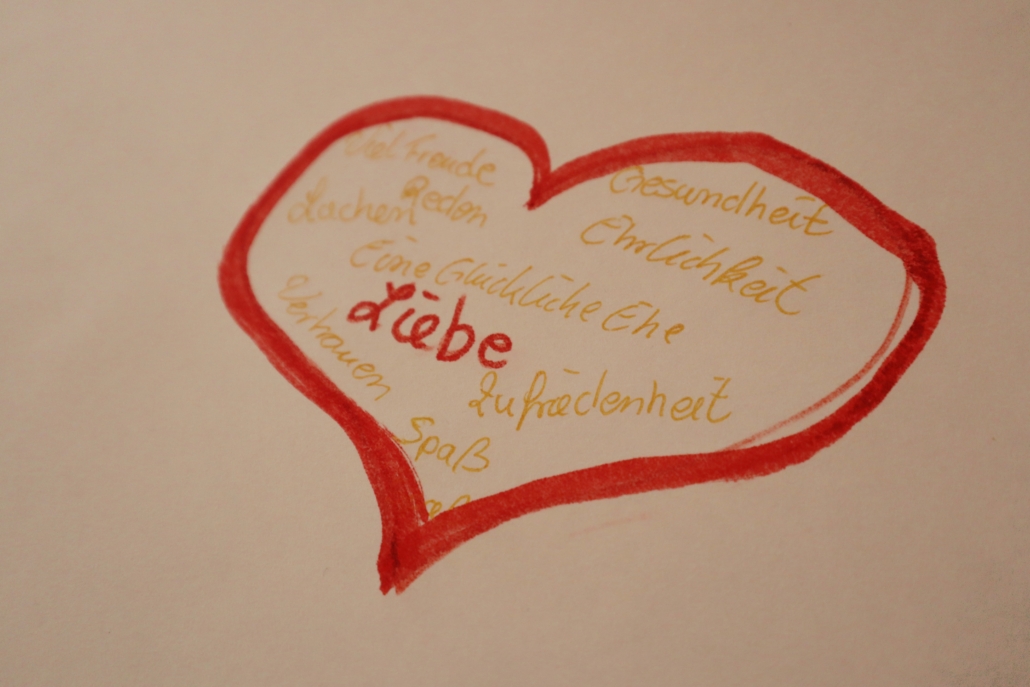 Viel Freude
Reden
Lachen
Gesundheit
Ehrlichkeit
Eine Glückliche Ehe
Liebe
Vertrauen
Zufriedenheit
Spaß